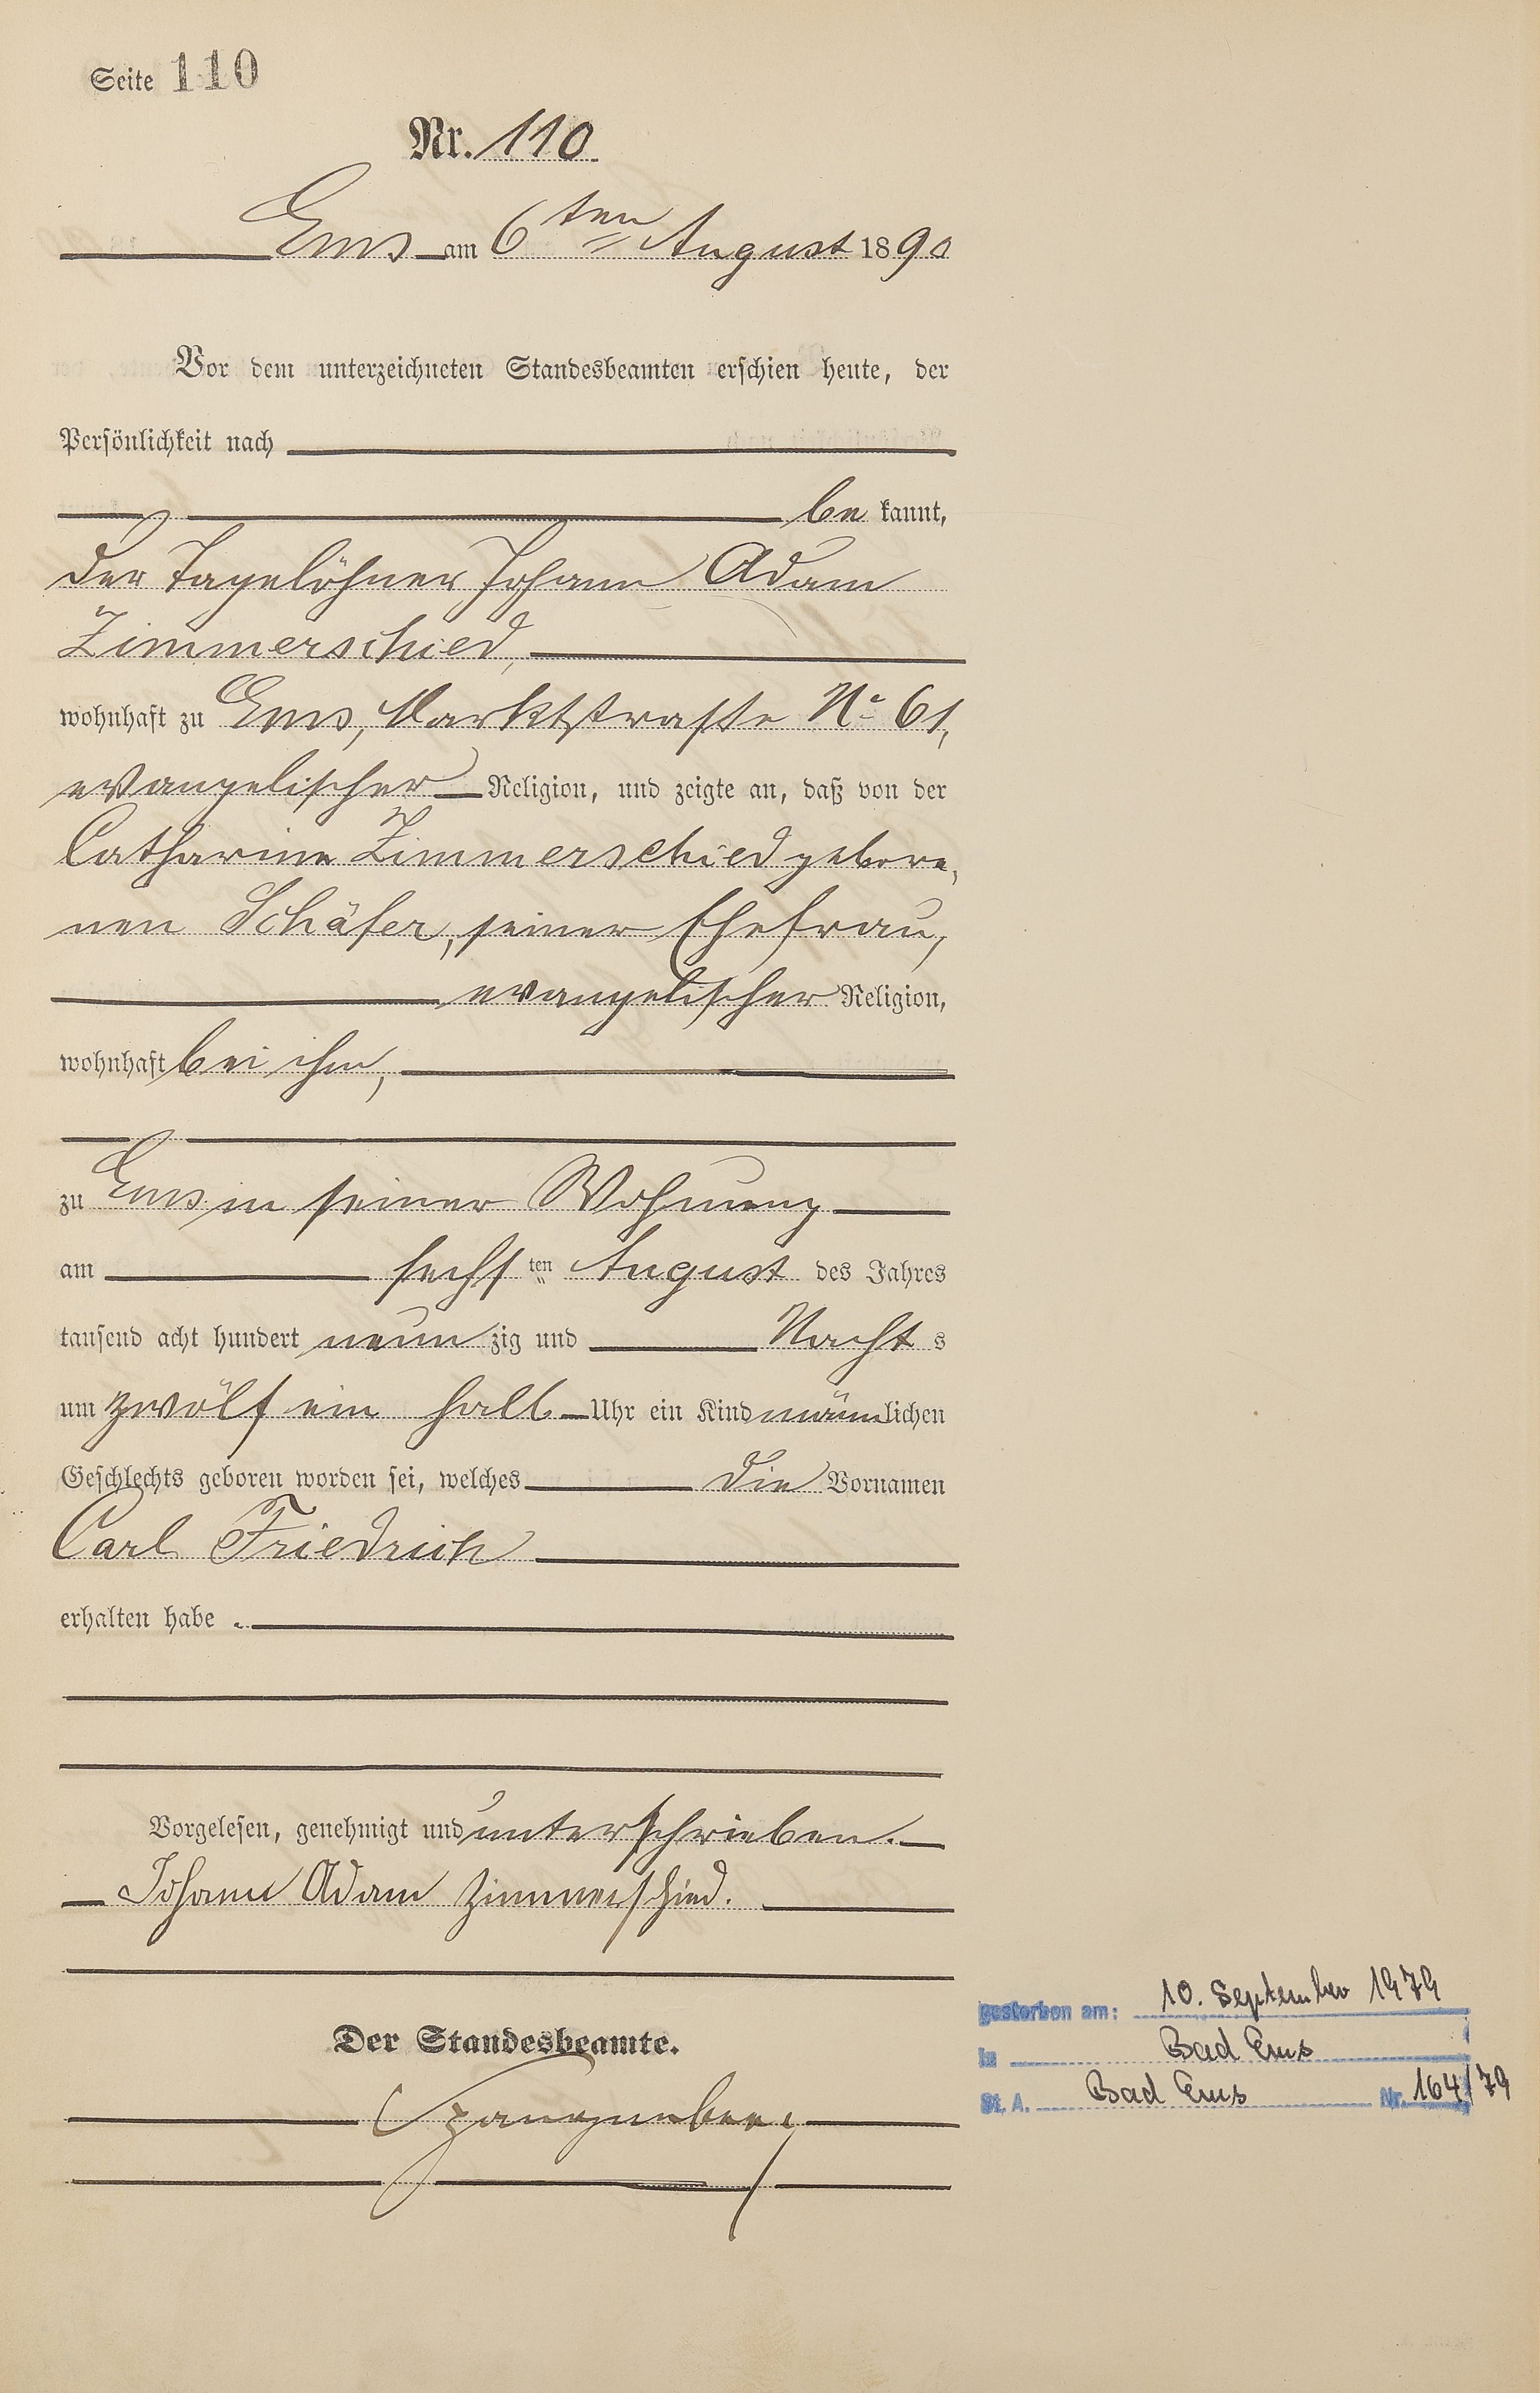 Seite 110
Nr. 110
Ems am 6ten August 1890
Vor dem unterzeichneten Standesbeamten erschien heute, der
Persönlichkeit nach
be kannt,
der Tagelöhner Johann Adam
Zimmerschied,
wohnhaft zu Ems, Marktstraße No 61,
evangelischer Religion, und zeigte an, daß von der
Catharine Zimmerschied gebore,
nen Schäfer, seiner Ehefrau,
evangelischer Religion,
wohnhaft bei ihm,
zu Ems in seiner Wohnung
am sechs ten August des Jahres
tausend acht hundert neun zig und Nacht s
um zwölf ein halb Uhr ein Kind männlichen
Geschlechts geboren worden sei, welches die Vornamen
Carl Friedrich
erhalten habe.
Vorgelesen, genehmigt und unterschrieben.
Johann Adam Zimmerschied.
Der Standesbeamte.
gestorben am: 10. September 1979
in Bad Ems
St. A. Bad Ems Nr. 164/79